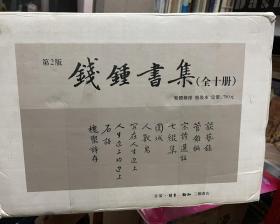 第2版
錢鍾書集(全十册)
談藝錄
管錐編
宋詩選註
七綴集
圍城
人獸鬼
寫在人生邊上
人生邊上的邊上
石語
槐聚詩存
生活·讀書·新知 三聯書店